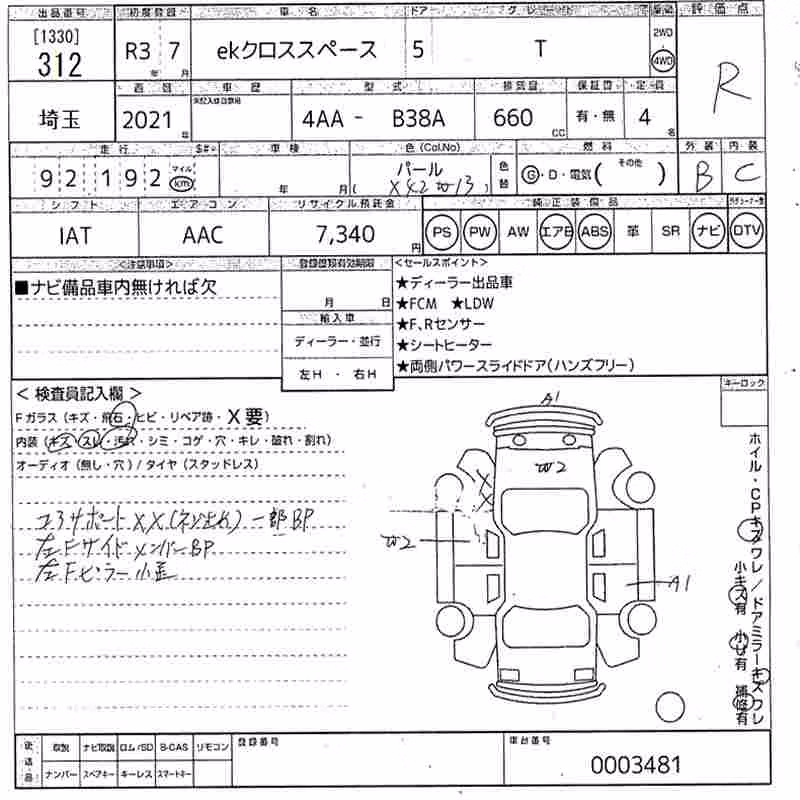 出品番号 初度登録 車名 ドア グレード 駆動 評価点
[1330]
312
R3 7
年 月
ekクロススペース 5 T
2WD
4WD
R
車歴 型式 排気量 保証書 定員
埼玉 2021 年 4AA - B38A 660 CC 有・無 4 名
走行 車検 色(Col.No) 燃料 外装 内装
92192 マイル km
年 月
パール
(X42 W13)
色替
G・D・電気( その他 )
B C
シフト エアーコン リサイクル預託金 純正装備品
IAT AAC 7,340 円 PS PW AW エアB ABS 革 SR ナビ DTV
<注意事項> 登録書類有効期限 <セールスポイント>
■ナビ備品車内無ければ欠
月 日
輸入車
ディーラー・並行
左H ・ 右H
★ディーラー出品車
★FCM ★LDW
★F、Rセンサー
★シートヒーター
★両側パワースライドドア(ハンズフリー)
キーロック
< 検査員記入欄 >
Fガラス(キズ・飛石・ヒビ・リペア跡・X要)
内装(キズ・スレ・汚れ・シミ・コゲ・穴・キレ・破れ・割れ)
オーディオ(無し・穴)/タイヤ(スタッドレス)
コアサポートXX(ネジ止め)一部BP
左FサイドメンバーBP
左Fピラー小歪
A1
W2
X
X
W2
A1
ホイル・CPキズワレ/ドアミラーキズワレ
小キズ有 小凹有 補修有
後送品 取説 ナビ取説 ロム/SD B-CAS リモコン
ナンバー スペアキー キーレス スマートキー
登録番号
車台番号
0003481